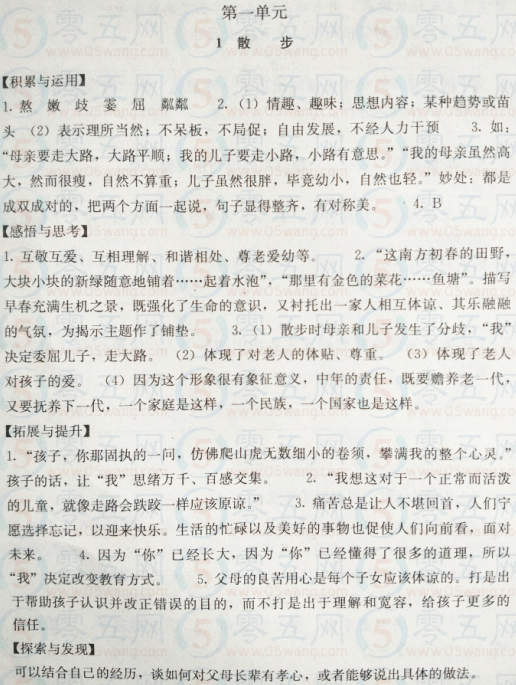 第一单元
1 散 步
【积累与运用】
1. 熬 嫩 歧 蒌 屈 粼粼 2. （1）情趣、趣味；思想内容；某种趋势或苗
头 （2）表示理所当然；不呆板，不局促；自由发展，不经人力干预 3. 如：
“母亲要走大路，大路平顺；我的儿子要走小路，小路有意思。”“我的母亲虽然高
大，然而很瘦，自然不算重；儿子虽然很胖，毕竟幼小，自然也轻。”妙处：都是
成双成对的，把两个方面一起说，句子显得整齐，有对称美。 4. B
【感悟与思考】
1. 互敬互爱、互相理解、和谐相处、尊老爱幼等。 2. “这南方初春的田野，
大块小块的新绿随意地铺着……起着水泡”，“那里有金色的菜花……鱼塘”。描写
早春充满生机之景，既强化了生命的意识，又衬托出一家人相互体谅、其乐融融
的气氛，为揭示主题作了铺垫。 3. （1）散步时母亲和儿子发生了分歧，“我”
决定委屈儿子，走大路。 （2）体现了对老人的体贴、尊重。 （3）体现了老人
对孩子的爱。 （4）因为这个形象很有象征意义，中年的责任，既要赡养老一代，
又要抚养下一代，一个家庭是这样，一个民族，一个国家也是这样。
【拓展与提升】
1. “孩子，你那固执的一问，仿佛爬山虎无数细小的卷须，攀满我的整个心灵。”
孩子的话，让“我”思绪万千、百感交集。 2. “我想这对于一个正常而活泼
的儿童，就像走路会跌跤一样应该原谅。” 3. 痛苦总是让人不堪回首，人们宁
愿选择忘记，以迎来快乐。生活的忙碌以及美好的事物也促使人们向前看，面对
未来。 4. 因为“你”已经长大，因为“你”已经懂得了很多的道理，所以
“我”决定改变教育方式。 5. 父母的良苦用心是每个子女应该体谅的。打是出
于帮助孩子认识并改正错误的目的，而不打是出于理解和宽容，给孩子更多的
信任。
【探索与发现】
可以结合自己的经历，谈如何对父母长辈有孝心，或者能够说出具体的做法。